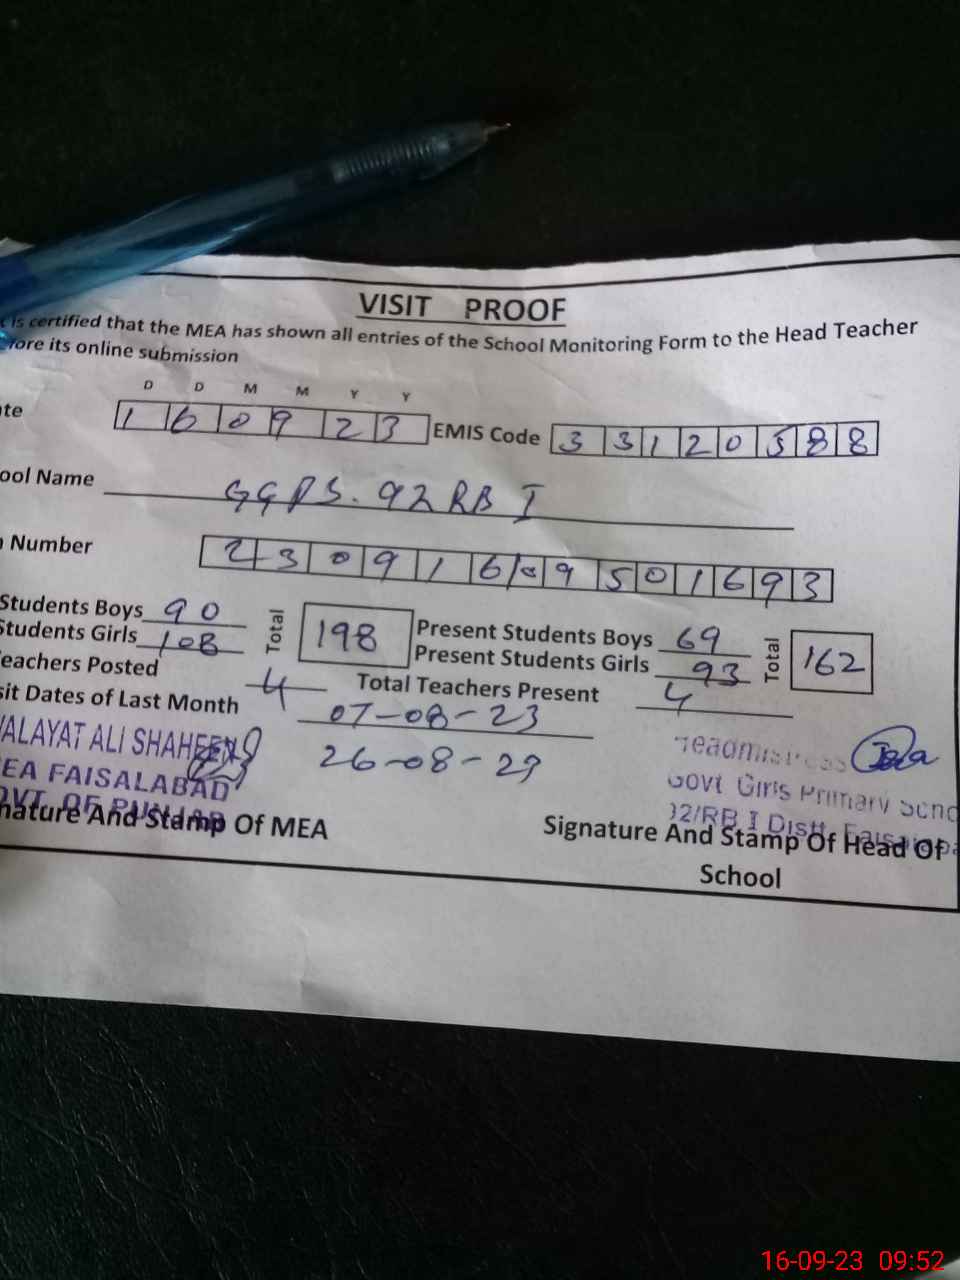 VISIT PROOF
is certified that the MEA has shown all entries of the School Monitoring Form to the Head Teacher
fore its online submission
D D M M Y Y
te 1 6 0 9 2 3 EMIS Code 3 3 1 2 0 5 8 8
ool Name GGPS. 92 RB I
Number 2 3 0 9 1 6 0 9 5 0 1 6 9 3
Students Boys 90 Total 198 Present Students Boys 69 Total 162
Students Girls 108 Present Students Girls 93
eachers Posted 4 Total Teachers Present 4
sit Dates of Last Month 07-08-23
26-08-23
WALAYAT ALI SHAHEEN
EA FAISALABAD
OVT. OF PUNJAB
nature And Stamp Of MEA
Headmistress
Govt Girls Primary Scho
92/RB I Distt. Faisalaba
Signature And Stamp Of Head Of
School
16-09-23 09:52